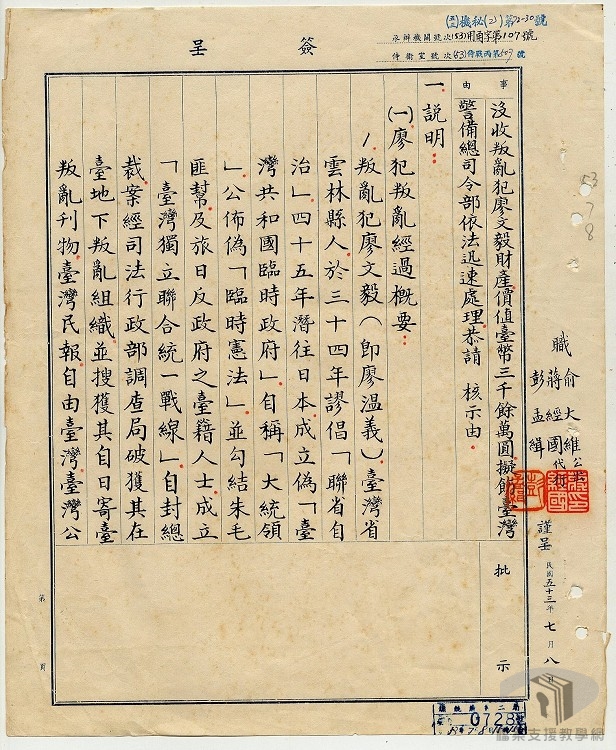 簽呈
(五三)機秘(2)第72-30號
承辦機關號次(53)用甬字第107號
侍衛室號次(53)侍戰丙第509號
事由
沒收叛亂犯廖文毅財產價值臺幣三千餘萬圓擬飭臺灣
警備總司令部依法迅速處理恭請 核示由
一、說明：
(一)廖犯叛亂經過概要：
1.叛亂犯廖文毅（即廖溫義）臺灣省
雲林縣人於三十四年謬倡「聯省自
治」四十五年潛往日本成立偽「臺
灣共和國臨時政府」自稱「大統領
」公佈偽「臨時憲法」並勾結朱毛
匪幫及旅日反政府之臺籍人士成立
「臺灣獨立聯合統一戰線」自封總
裁案經司法行政部調查局破獲其在
臺地下叛亂組織並搜獲其自日寄臺
叛亂刊物臺灣民報自由臺灣臺灣公
職
俞大維公出
蔣經國代行
彭孟緝
謹呈
民國五十三年七月八日
批示
第 頁
0728
53
7
8
檔案支援教學網